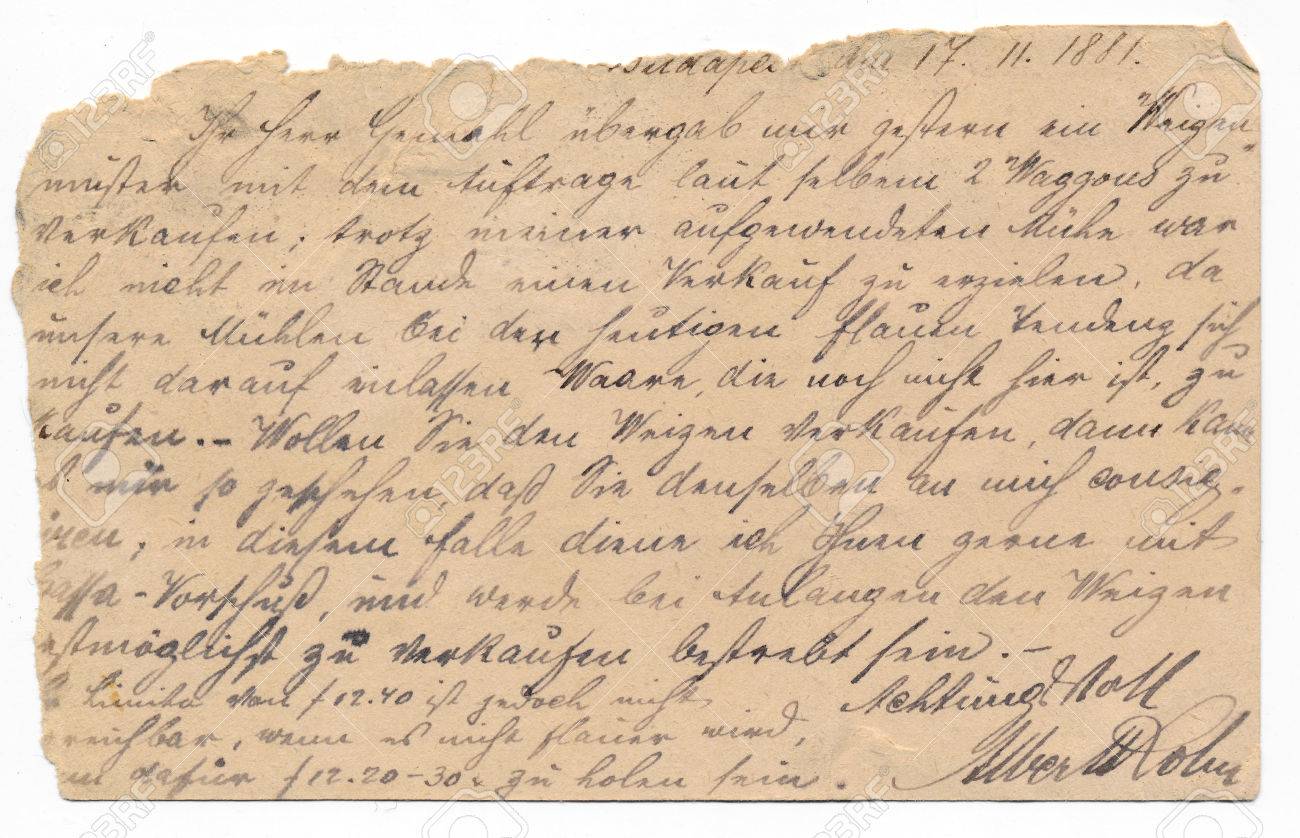 den 17. 11. 1881.
Ihr Herr Gemahl übergab mir gestern ein Weizen
muster mit dem Auftrage laut selbem 2 Waggons zu
verkaufen; trotz meiner aufgewendeten Mühe war
ich nicht im Stande einen Verkauf zu erzielen, da
unsere Mühlen bei der heutigen flauen Tendenz sich
nicht darauf einlassen Waare, die noch nicht hier ist, zu
kaufen. – Wollen Sie den Weizen verkaufen, dann kann
nur so geschehen, daß Sie denselben an mich consig-
iren; in diesem Falle diene ich Ihnen gerne mit
Cassa-Vorschuß, und werde bei Anlangen den Weizen
estmöglichst zu verkaufen bestrebt sein. –
Limito von f 12.40 ist jedoch nicht
reichbar, wenn es nicht flauer wird,
dafür f 12.20-30 zu holen sein.
Achtungsvoll
Albert
123RF